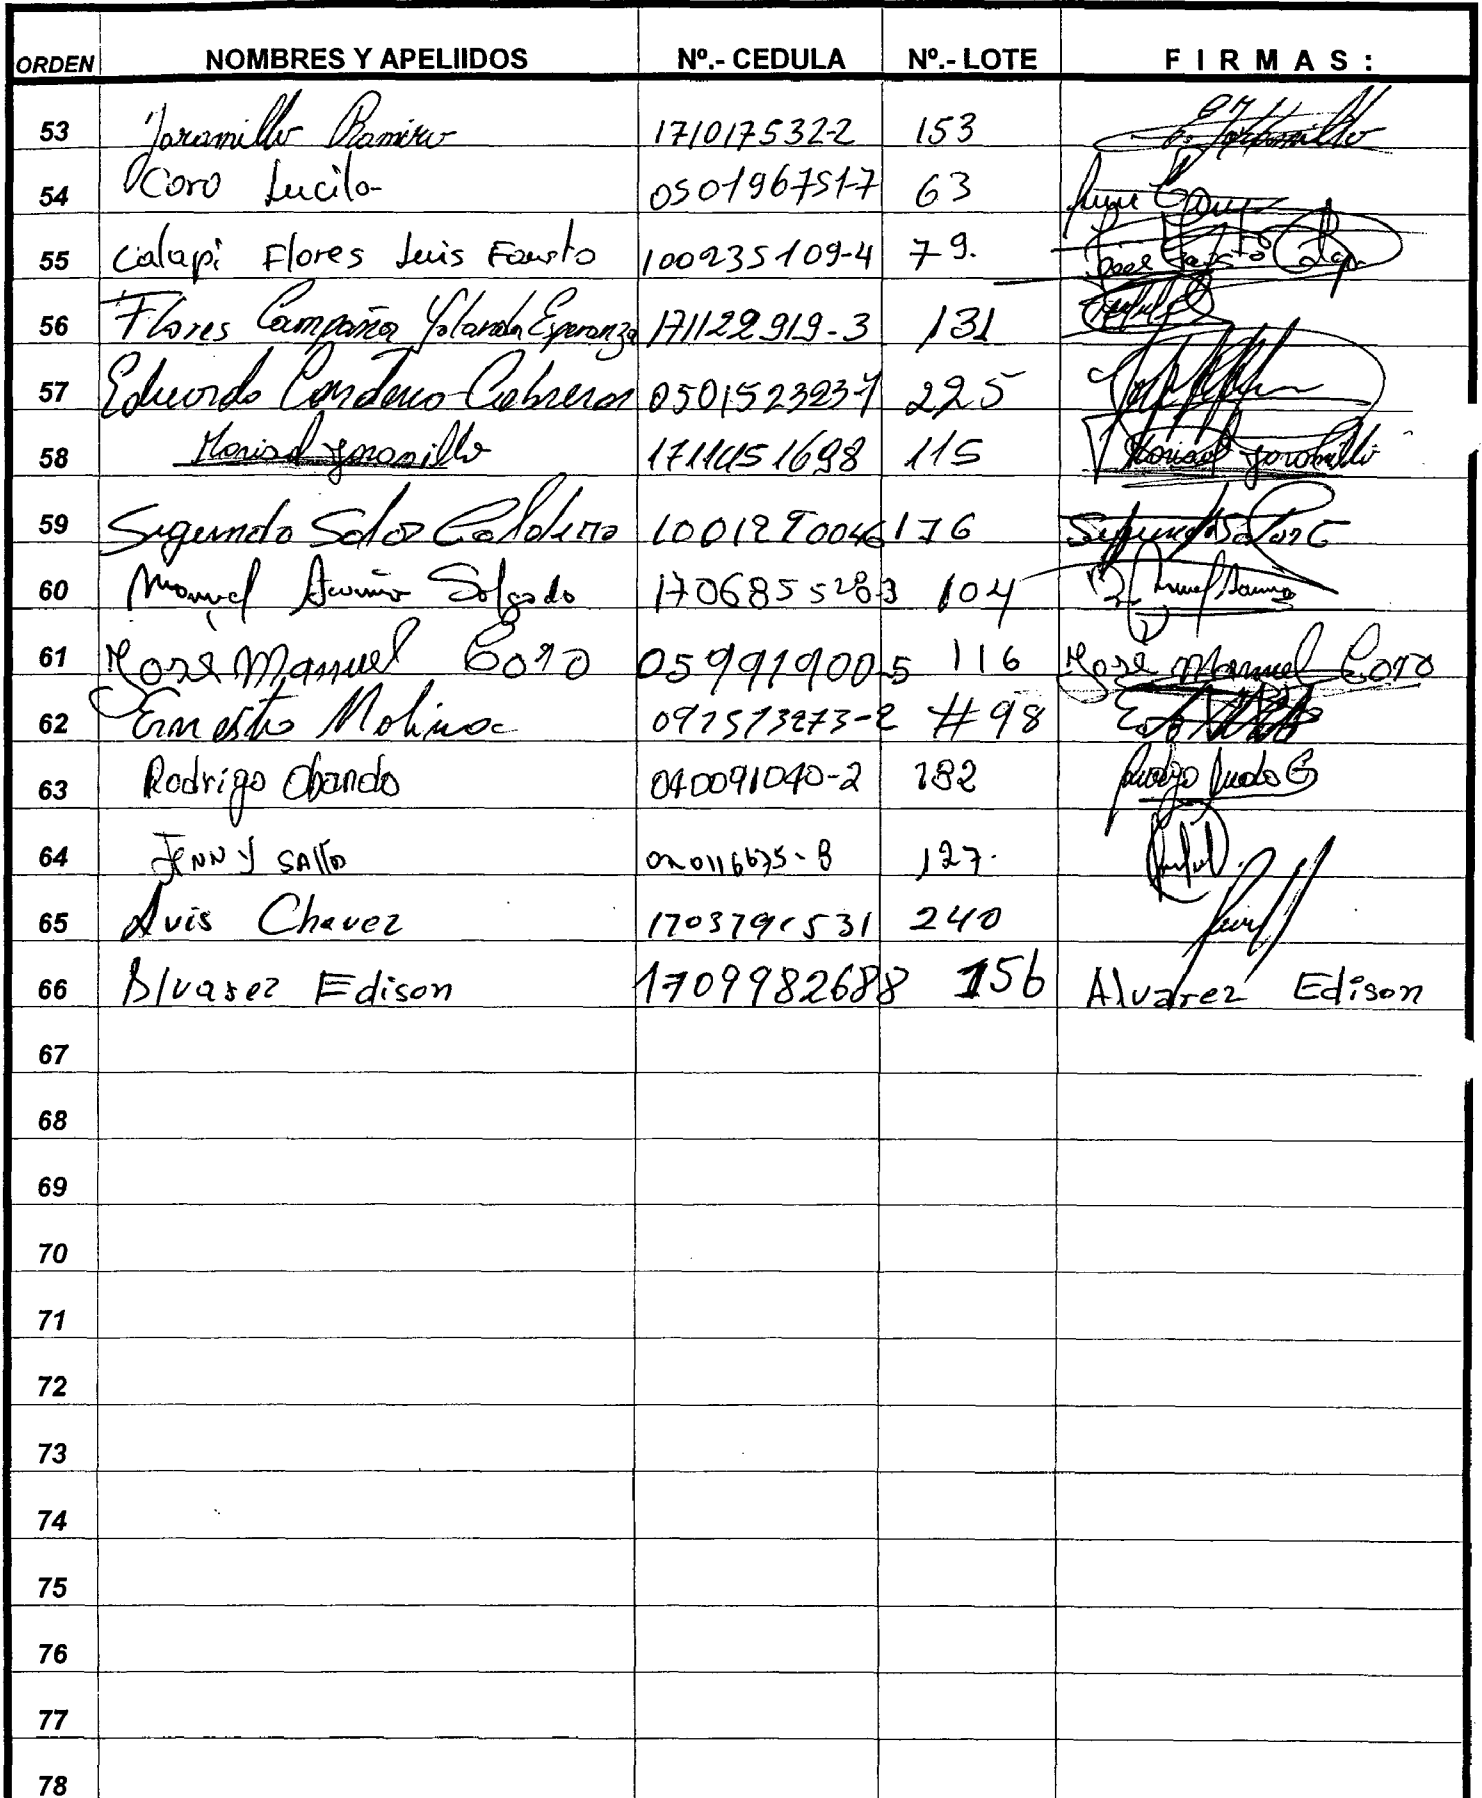 ORDEN NOMBRES Y APELIIDOS Nº.- CEDULA Nº.- LOTE F I R M A S :
53 Jaramillo Ramiro 171017532-2 153 Jaramillo
54 Coro Lucila 050196751-7 63
55 Calapi Flores Luis Fausto 100235109-4 79.
56 Flores Campaña Yolanda Esperanza 171122919-3 131
57 Eduardo Cordero Cabreras 225
58 Marisol Jaramillo 115 Marisol Jaramillo
59 Segundo Salas Calderon 176 Segundo Salas C
60 Manuel Salgado 170685528-3 104
61 Jose Manuel Coro 059919005 116 Jose Manuel Coro
62 Ernesto Molina 092573273-2 #98
63 Rodrigo Obando 040091040-2 182
64 JENNY SAlto 127.
65 Luis Chavez 240
66 Alvarez Edison 1709982688 156 Alvarez Edison
67
68
69
70
71
72
73
74
75
76
77
78